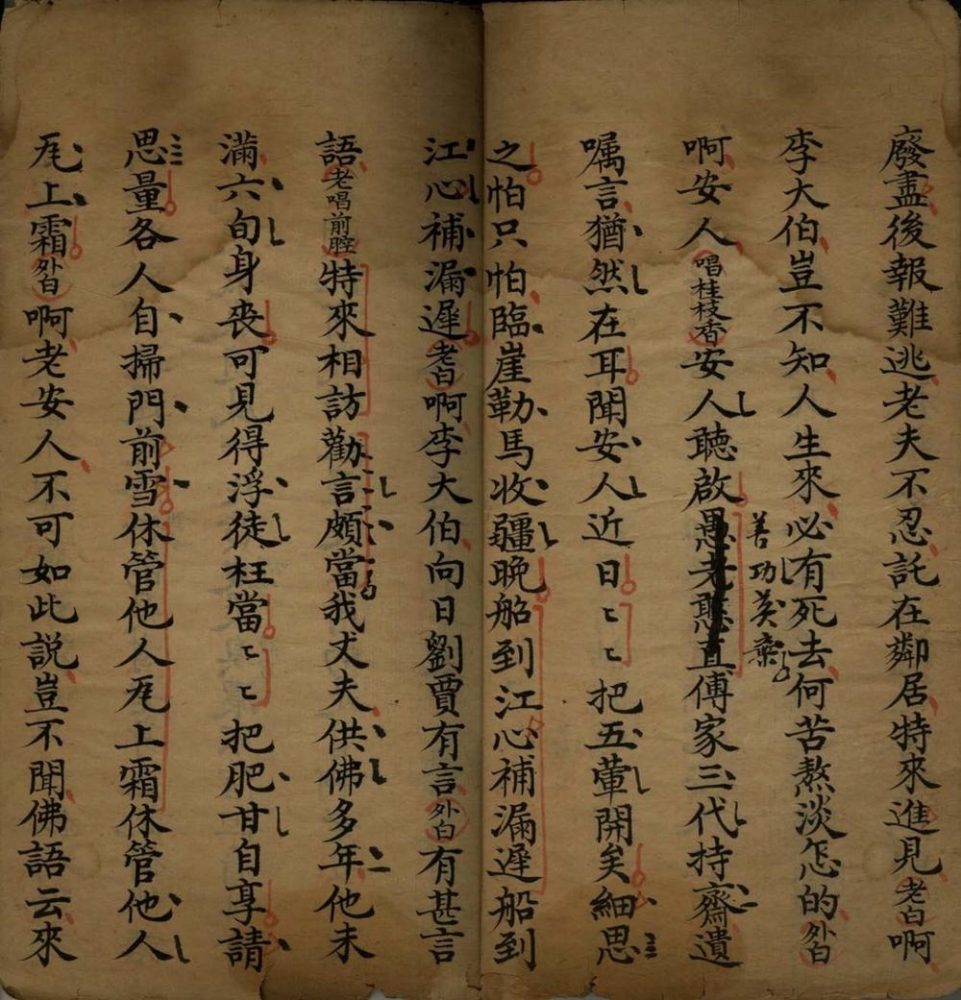 廢盡後報難逃老夫不忍託在鄰居特來進見老白啊
李大伯豈不知人生來必有死去何苦熬淡怎的外白
啊安人唱桂枝香安人聽啟愚老憨直傅家三代持齋遺
善功莫棄
嘱言猶然在耳聞安人近日〻〻把五葷開矣細思
之怕只怕臨崖勒馬收疆晚船到江心補漏遲船到
江心補漏遲老白啊李大伯向日劉賈有言外白有甚言
語老唱前腔特來相訪勸言頗當我丈夫供佛多年他未
滿六旬身丧可見得浮徒枉當〻〻把肥甘自享請
思量各人自掃門前雪休管他人瓦上霜休管他人
瓦上霜外白啊老安人不可如此説豈不聞佛語云來